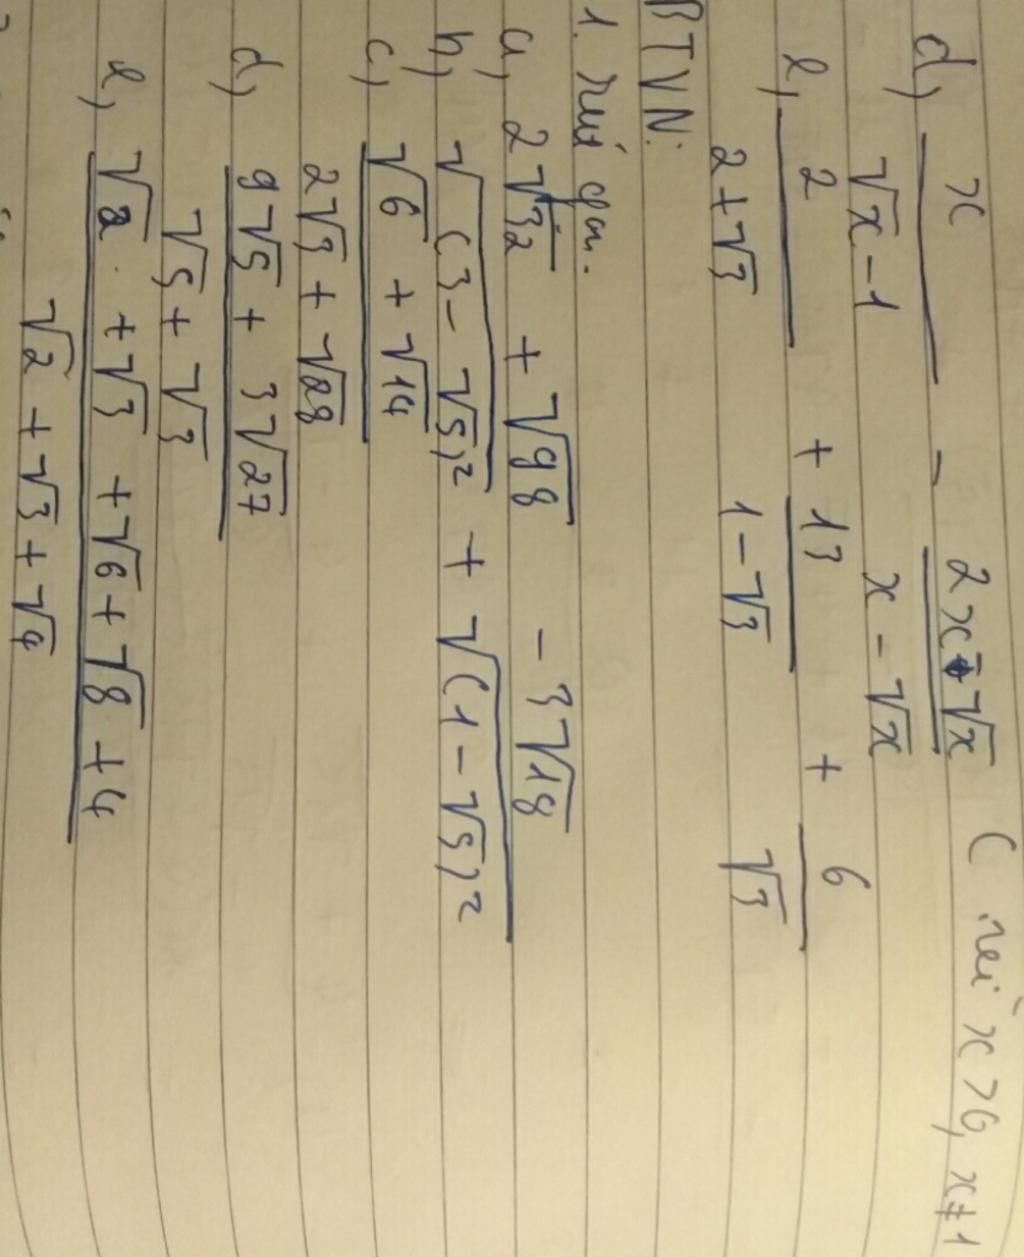 d, x/(√x-1) - (2x-√x)/(x-√x) ( x>0, x≠1
e, 2/(2+√3) + 13/(1-√3) + 6/√3
BTVN:
1. rút gọn.
a, 2√32 + √98 - 3√18
b, √(3-√5)² + √(1-√5)²
c, (√6 + √14)/(2√3 + √28)
d, (9√5 + 3√27)/(√5 + √3)
e, (√2 + √3 + √6 + √8 + 4)/(√2 + √3 + √4)